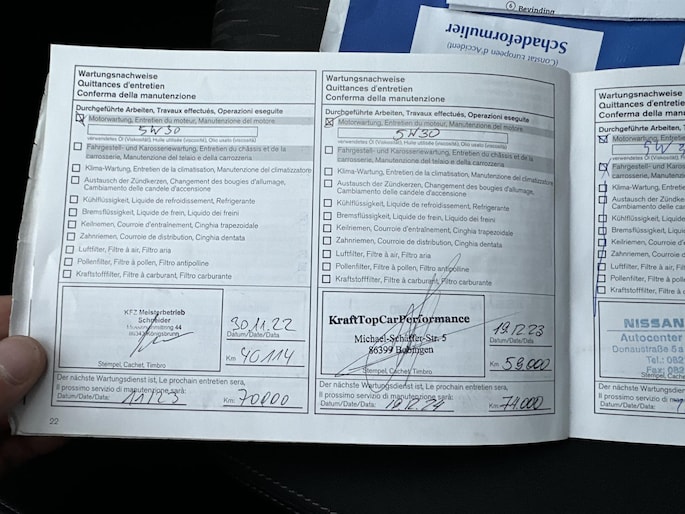 ⑥ Bevinding
Schadeformulier
(Constat Européen d'Accident)
Wartungsnachweise
Quittances d'entretien
Conferma della manutenzione
Durchgeführte Arbeiten, Travaux effectués, Operazioni eseguite
Motorwartung, Entretien du moteur, Manutenzione del motore
5W30
verwendetes Öl (Viskosität), Huile utilisée (viscosité), Olio usato (viscosità)
Fahrgestell- und Karosseriewartung, Entretien du châssis et de la
carrosserie, Manutenzione del telaio e della carrozzeria
Klima-Wartung, Entretien de la climatisation, Manutenzione del climatizzatore
Austausch der Zündkerzen, Changement des bougies d'allumage,
Cambiamento delle candele d'accensione
Kühlflüssigkeit, Liquide de refroidissement, Refrigerante
Bremsflüssigkeit, Liquide de frein, Liquido dei freini
Keilriemen, Courroie d'entraînement, Cinghia trapezoidale
Zahnriemen, Courroie de distribution, Cinghia dentata
Luftfilter, Filtre à air, Filtro aria
Pollenfilter, Filtre à pollen, Filtro antipolline
Kraftstofffilter, Filtre à carburant, Filtro carburante
KFZ Meisterbetrieb
Schneider
30.11.22
Datum/Date/Data
Km: 40114
Stempel, Cachet, Timbro
Der nächste Wartungsdienst ist, Le prochain entretien sera,
Il prossimo servizio di manutenzione sarà:
Datum/Date/Data: 11/23 Km: 70000
22
Wartungsnachweise
Quittances d'entretien
Conferma della manutenzione
Durchgeführte Arbeiten, Travaux effectués, Operazioni eseguite
Motorwartung, Entretien du moteur, Manutenzione del motore
5W30
verwendetes Öl (Viskosität), Huile utilisée (viscosité), Olio usato (viscosità)
Fahrgestell- und Karosseriewartung, Entretien du châssis et de la
carrosserie, Manutenzione del telaio e della carrozzeria
Klima-Wartung, Entretien de la climatisation, Manutenzione del climatizzatore
Austausch der Zündkerzen, Changement des bougies d'allumage,
Cambiamento delle candele d'accensione
Kühlflüssigkeit, Liquide de refroidissement, Refrigerante
Bremsflüssigkeit, Liquide de frein, Liquido dei freini
Keilriemen, Courroie d'entraînement, Cinghia trapezoidale
Zahnriemen, Courroie de distribution, Cinghia dentata
Luftfilter, Filtre à air, Filtro aria
Pollenfilter, Filtre à pollen, Filtro antipolline
Kraftstofffilter, Filtre à carburant, Filtro carburante
KraftTopCarPerformance
Michael-Schäffer-Str. 5
86399 Bobingen
19.12.23
Datum/Date/Data
Km: 59.000
Stempel, Cachet, Timbro
Der nächste Wartungsdienst ist, Le prochain entretien sera,
Il prossimo servizio di manutenzione sarà:
Datum/Date/Data: 19.12.24 Km: 74.000
Wartungsnachweise
Quittances d'entretien
Conferma della manut
Durchgeführte Arbeiten, T
Motorwartung, Entretie
5W3
verwendetes Öl (Viskosität)
Fahrgestell- und Karos
carrosserie, Manutenzio
Klima-Wartung, Entreti
Austausch der Zündke
Cambiamento delle ca
Kühlflüssigkeit, Liquid
Bremsflüssigkeit, Liqu
Keilriemen, Courroie d
Zahnriemen, Courroie
Luftfilter, Filtre à air, F
Pollenfilter, Filtre à po
Kraftstofffilter, Filtre à
NISSAN
Autocenter
Donaustraße 5a
Tel.: 082
Fax: 082
Stempel, Cache
Der nächste Wartungsdi
Il prossimo servizio di m
Datum/Date/Data: